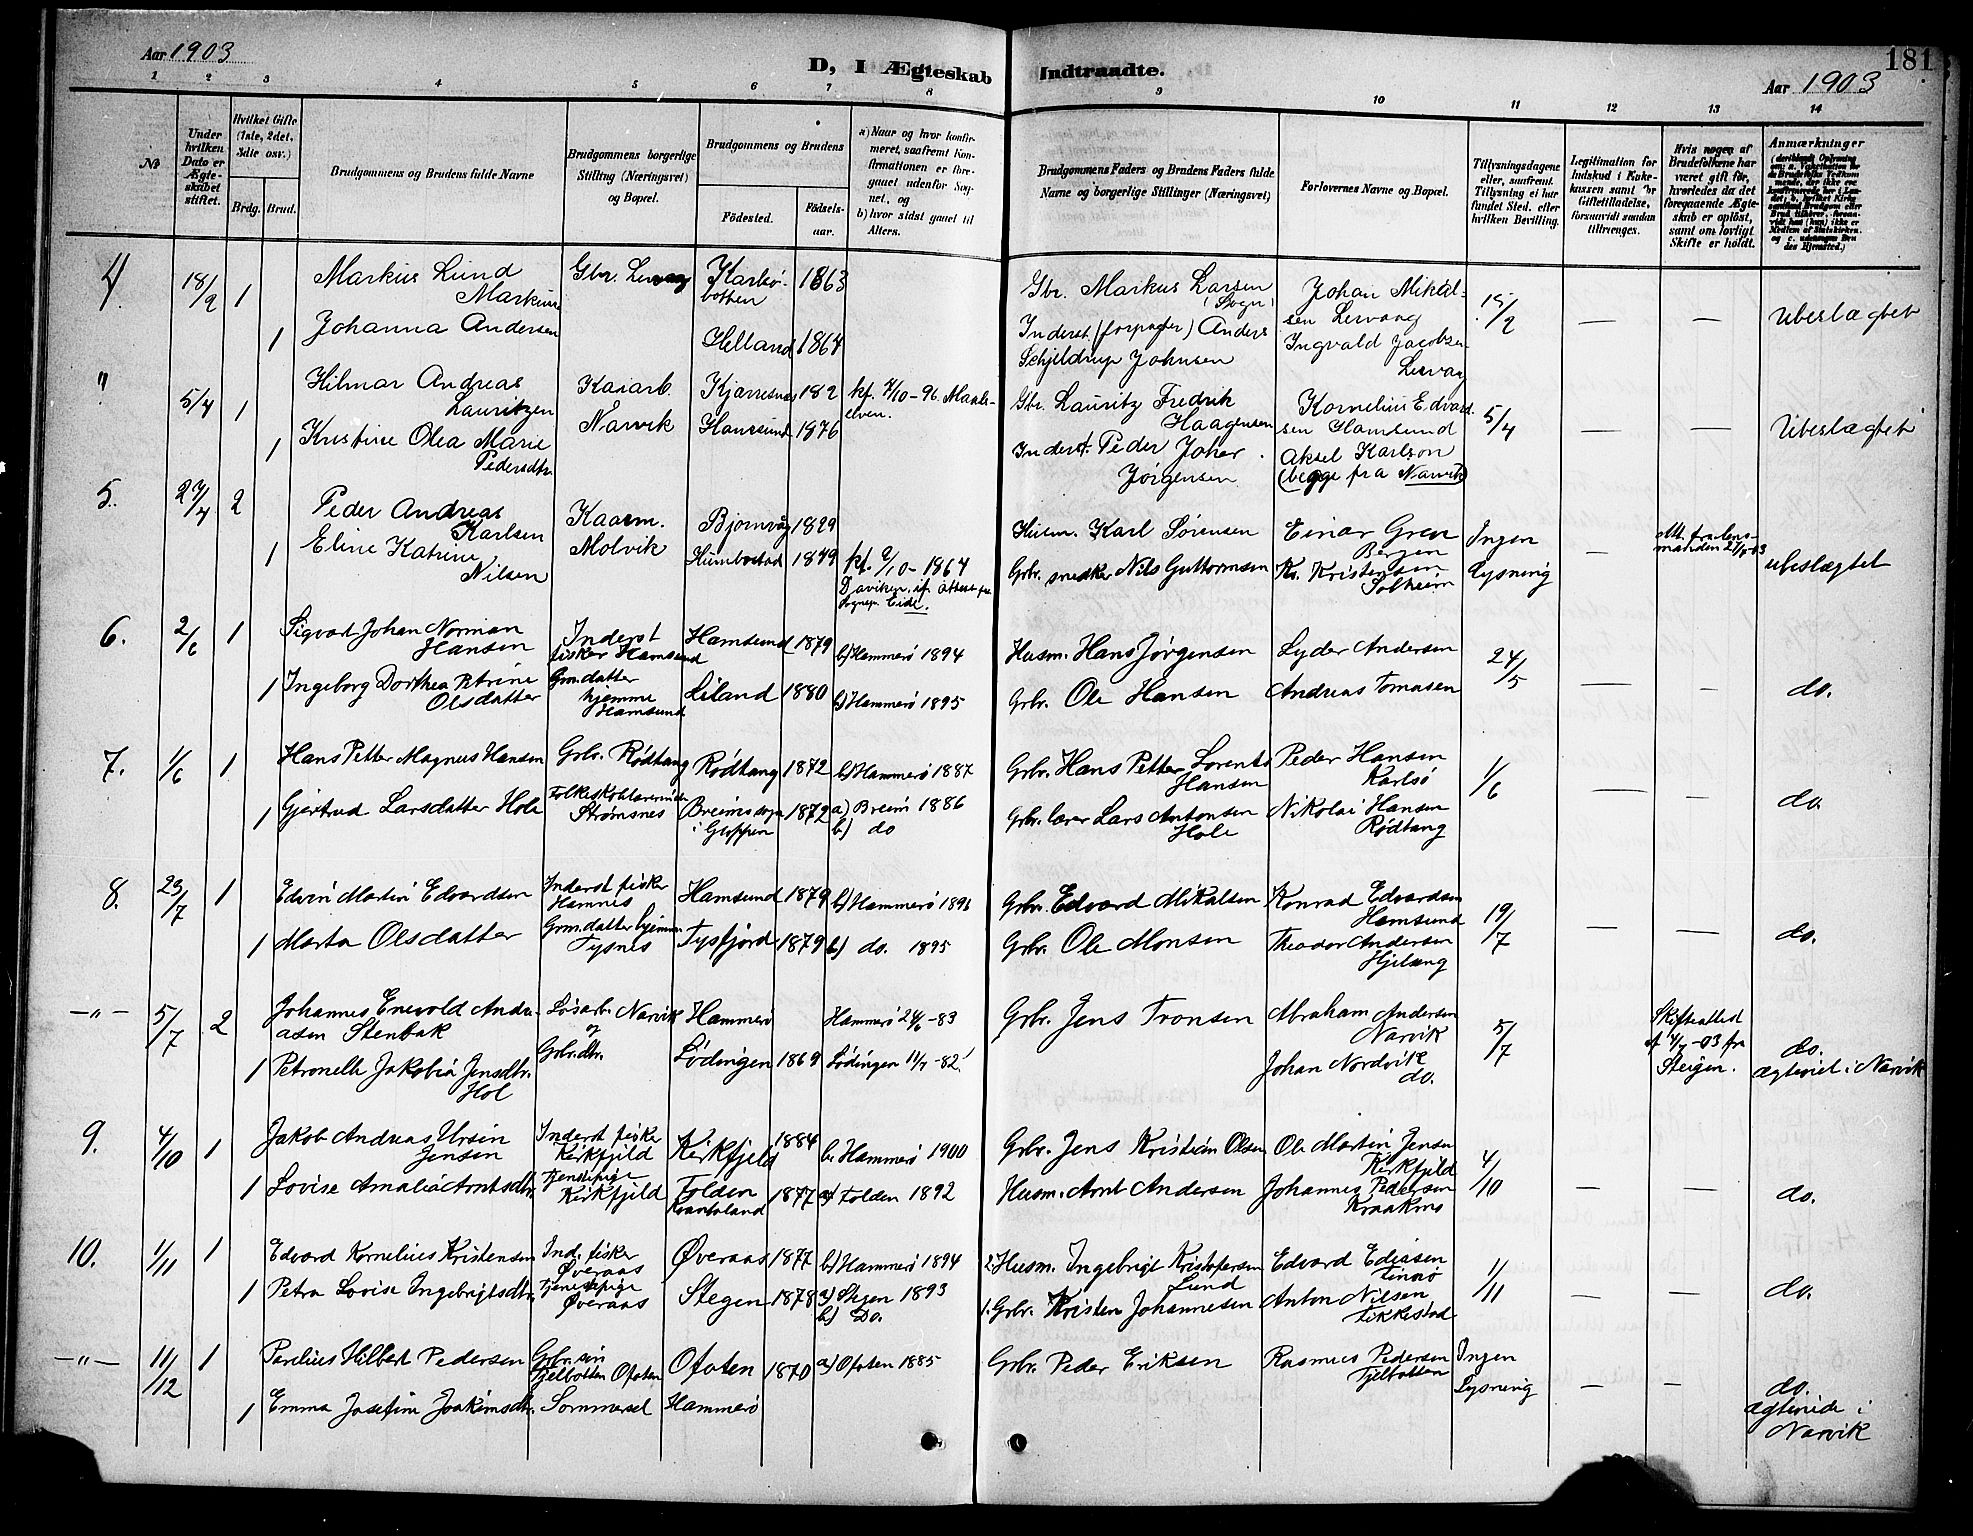 Aar 1903
D, I Ægteskab Indtraadte.
181
Aar 1903
1 2 3 4 5 6 7 8 9 10 11 12 13 14
No
Under hvilken Dato er Ægteskabet stiftet.
Hvilket Gifte (1ste, 2det, 3die osv.)
Brdg. Brud.
Brudgommens og Brudens fulde Navne
Brudgommens borgerlige Stilling (Næringsvei) og Bopæl.
Brudgommens og Brudens
Födested. Födselsaar.
a) Naar og hvor konfirmeret, saafremt Konfirmationen er foregaaet udenfor Sognet, og
b) hvor sidst gaaet til Alters.
Brudgommens Faders og Brudens Faders fulde Navne og borgerlige Stillinger (Næringsvei)
Forlovernes Navne og Bopæl.
Tillysningsdagene eller, saafremt Tillysning ei har fundet Sted, efter hvilken Bevilling.
Legitimation for Indskud i Enkekassen samt for Giftetilladelse, forsaavidt saadan tiltrænges.
Hvis nogen af Brudefolkene har været gift för, hvorledes da det foregaaende Ægteskab er oplöst, samt om lovligt Skifte er holdt.
Anmærkninger
4 18/2 1 Markus Lund Gbr. Karlsö- 1863 Gbr. Markus Larsen Johan Mikal- 15/2 — — Ubeslægtet
Markus botten (Sogn) sen Lervaag
1 Johanna Andersen Helland 1864 Inderst (forpagter) Anders Ingvald Jacobsen
Schjeldrup Johnsen Lervag
" 5/4 1 Hilmar Andreas Kaiarb. 182 kf. 4/10-96 Maals- Gbr. Lauritz Fredrik Kornelius Edvard- 5/4 — — Ubeslægtet
Lauritzen Narvik elven. Haagensen sen Hamsund
1 Kristine Olea Marie Hamsund 1876 Inderst. Peder Johan Aksel Karlson
Pedersdtr. Jørgensen (begge fra Narvik)
5. 27/4 2 Peder Andreas Kaarm. 1829 Husm. Karl Sørensen Einar Gren Ingen —
Karlsen Molvik Bergen
1 Eline Katrine 1849 kf. 2/10-1864 Grbr. snedker Nils Guttormsen Kr. Kristensen Lysning ubeslægtet
Nilsen Daviken, Solheim
Sognepr. Eide.
6. 2/6 1 Sigvart Johan Norman Inderst Hamsund 1879 b) Hammerö 1894 Husm. Hans Jørgensen Lyder Andersen 24/5 — —
Hansen fisker Hamsund
1 Ingeborg Dorthea Petrine Grm. datter Liland 1880 b) Hammerö 1895 Grbr. Ole Hansen Andreas Tomasen do.
Olsdatter hjemme Hamsund
7. 1/6 1 Hans Petter Magnus Hansen Grbr. Rödtang Rödtang 1872 b) Hammerö 1887 Grbr. Hans Petter Lorents Peder Hansen 1/6 — —
Hansen Karlsö
1 Gjertrud Larsdatter Hole Folkeskolelærerinde Breims sogn 1872 a) Breim 1886 Grbr. lærer Lars Antonsen Nikolai Hansen do.
Strömsnes i Gloppen b) do Hole Rödtang
8. 23/7 1 Edvin Martin Edvardsen Inderst fisker Hamsund 1879 b) Hammerö 1896 Grbr. Edvard Mikalsen Konrad Edvardsen 19/7 — —
Hamnes Hamsund
1 Marta Olsdatter Grm. datter hjemme Tysfjord 1879 b) do. 1895 Grbr. Ole Monsen Theodor Andersen do.
Tysnes
—"— 5/7 2 Johannes Enevold Andre- Lösarb. Narvik Hammerö Hammerö 24/6-83 Grbr. Jens Tronsen Abraham Andersen 5/7 Skifteattest
asen Stenbak og Narvik af 4/7-03 fra
1 Petronelle Jakobia Jensdtr. Grbr. dtr. Lödingen 1869 Lödingen 11/7-82. Johan Nordvik Steigen. do.
Hol do. ægteviet i Narvik
9. 4/10 1 Jakob Andreas Ursin Inderst fisker Kirkfjeld 1884 b. Hammerö 1900 Grbr. Jens Kristian Olsen Ole Martin Jensen 4/10 — —
Jensen Kirkfjeld Kirkfjeld
1 Lovise Amalia Arntsdtr. Tjenstepige Folden 1877 a) Folden 1892 Husm. Arnt Andersen Johannes Pedersen do.
Kirkfjeld Kraakmo
10. 1/11 1 Edvard Kornelius Kristensen Ind. fisker Øveraas 1877 b) Hammerö 1894 2. Husm. Ingebrigt Kristofersen Edvard Ediasen 1/11 — —
Øveraas Lund Finnö
1 Petra Lovise Ingebrigtsdtr. Tjenestepige Stegen 1878 a) Stegen 1893 1. Grbr. Kristen Johannesen Anton Nilsen do.
Øveraas b) Do. Fikkestad
—"— 11/12 1 Parelius Hilbert Pedersen Grbr. søn Ofoten 1870 a) Ofoten 1885 Grbr. Peder Eriksen Rasmus Pedersen Ingen — —
Fjelbotten Ofoten Fjelbotten Lysning
1 Emma Josefine Joakimsdtr. Sommersel Hammerö do.
ægteviede i
Narvik